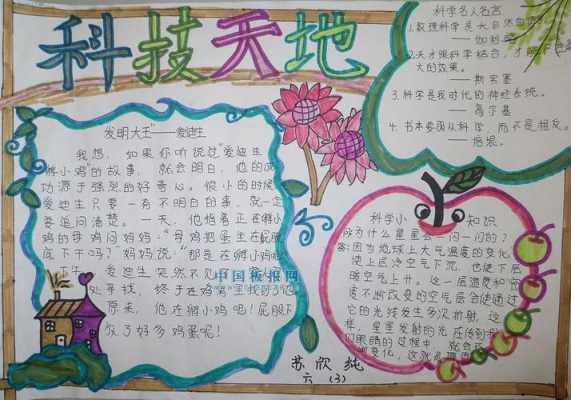 科技天地
科学名人名言
1.数理科学是大自然
——伽利略
2.天才跟科学结合,才能
大的效果。
——斯宾塞
3.科学是我时代的神经系统。
——高尔基
4.书本要跟从科学,而不是相反。
——培根。
发明大王"——爱迪生
我想,如果你听说过"爱迪生
孵小鸡"的故事,就会明白,他的成
功源于强烈的好奇心。很小的时候
爱迪生只要一有不明白的事,就一定
要追问清楚。一天,他指着正在孵小
鸡的母鸡问妈妈:"母鸡把蛋坐在屁股
底下干吗?"妈妈说:"那是在孵小鸡呢
下午,爱迪生突然不见了
处寻找,终于在鸡窝里找到了他
原来,他在孵小鸡呢!屁股下
放了好多鸡蛋呢!
中国板报网
科学小知识
为什么星星会一闪一闪的?
答:因为地球上大气温度的变化,
使上层冷空气下沉,也使下层
暖空气上升。这一层温度和密
度不断改变的空气层会使通过
它的光线发生多次折射,这
样,星星发射的光在传到我
们眼睛的过程中,就会
变化,这就
苏欣纯
六(3)